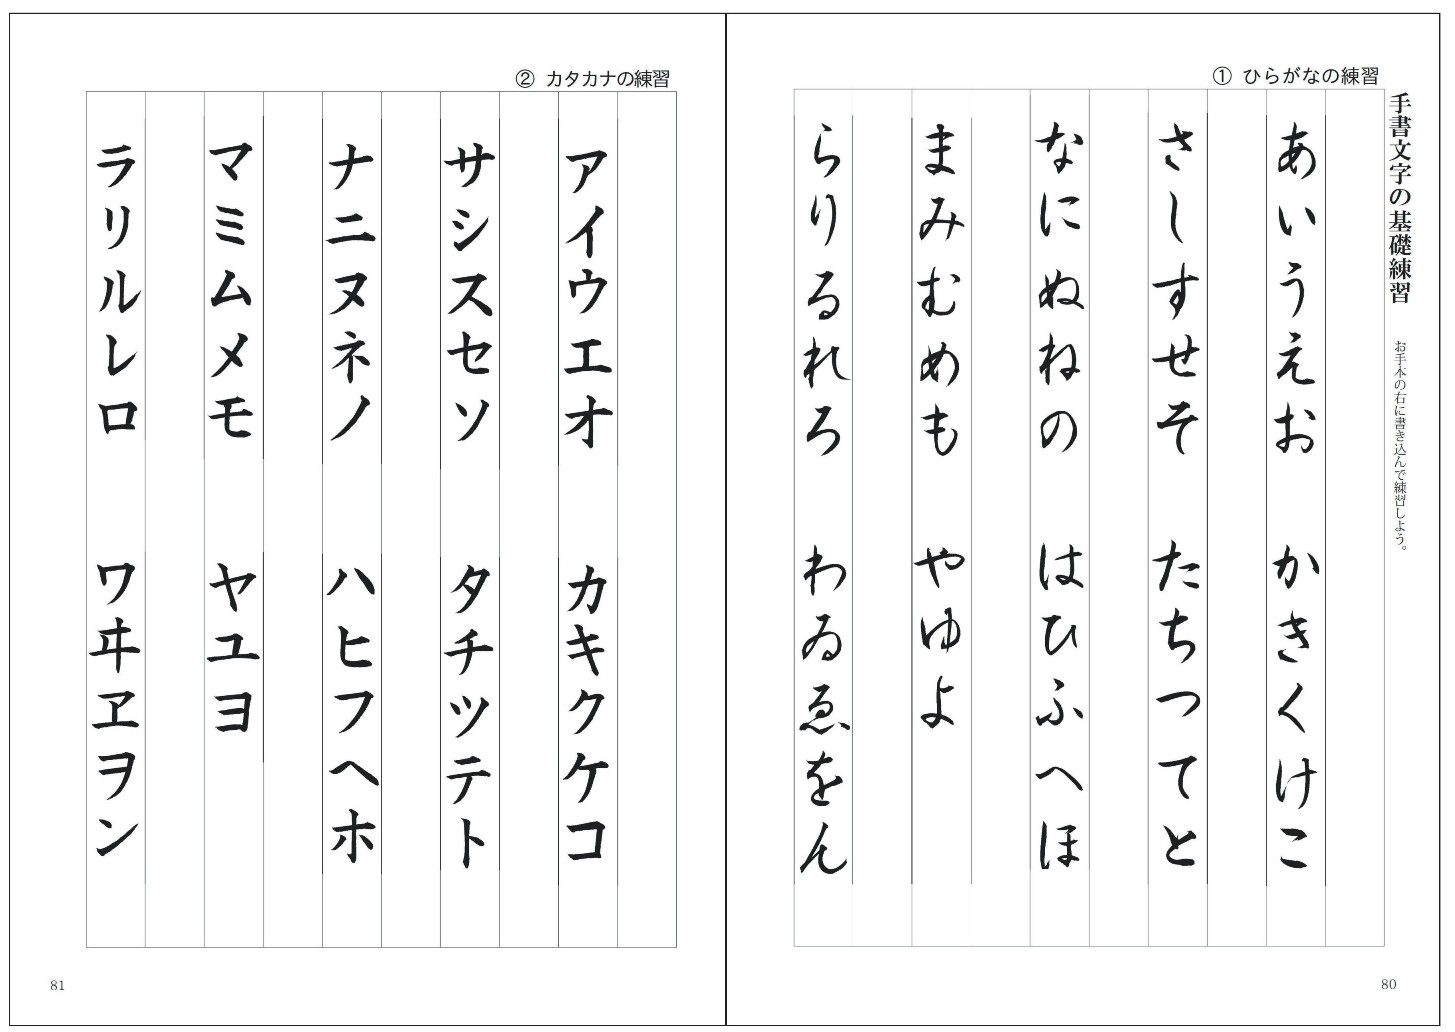 手書文字の基礎練習
お手本の右に書き込んで練習しよう。
① ひらがなの練習
あいうえお かきくけこ
さしすせそ たちつてと
なにぬねの はひふへほ
まみむめも やゆよ
らりるれろ わゐゑをん
80
② カタカナの練習
アイウエオ カキクケコ
サシスセソ タチツテト
ナニヌネノ ハヒフヘホ
マミムメモ ヤユヨ
ラリルレロ ワヰヱヲン
81